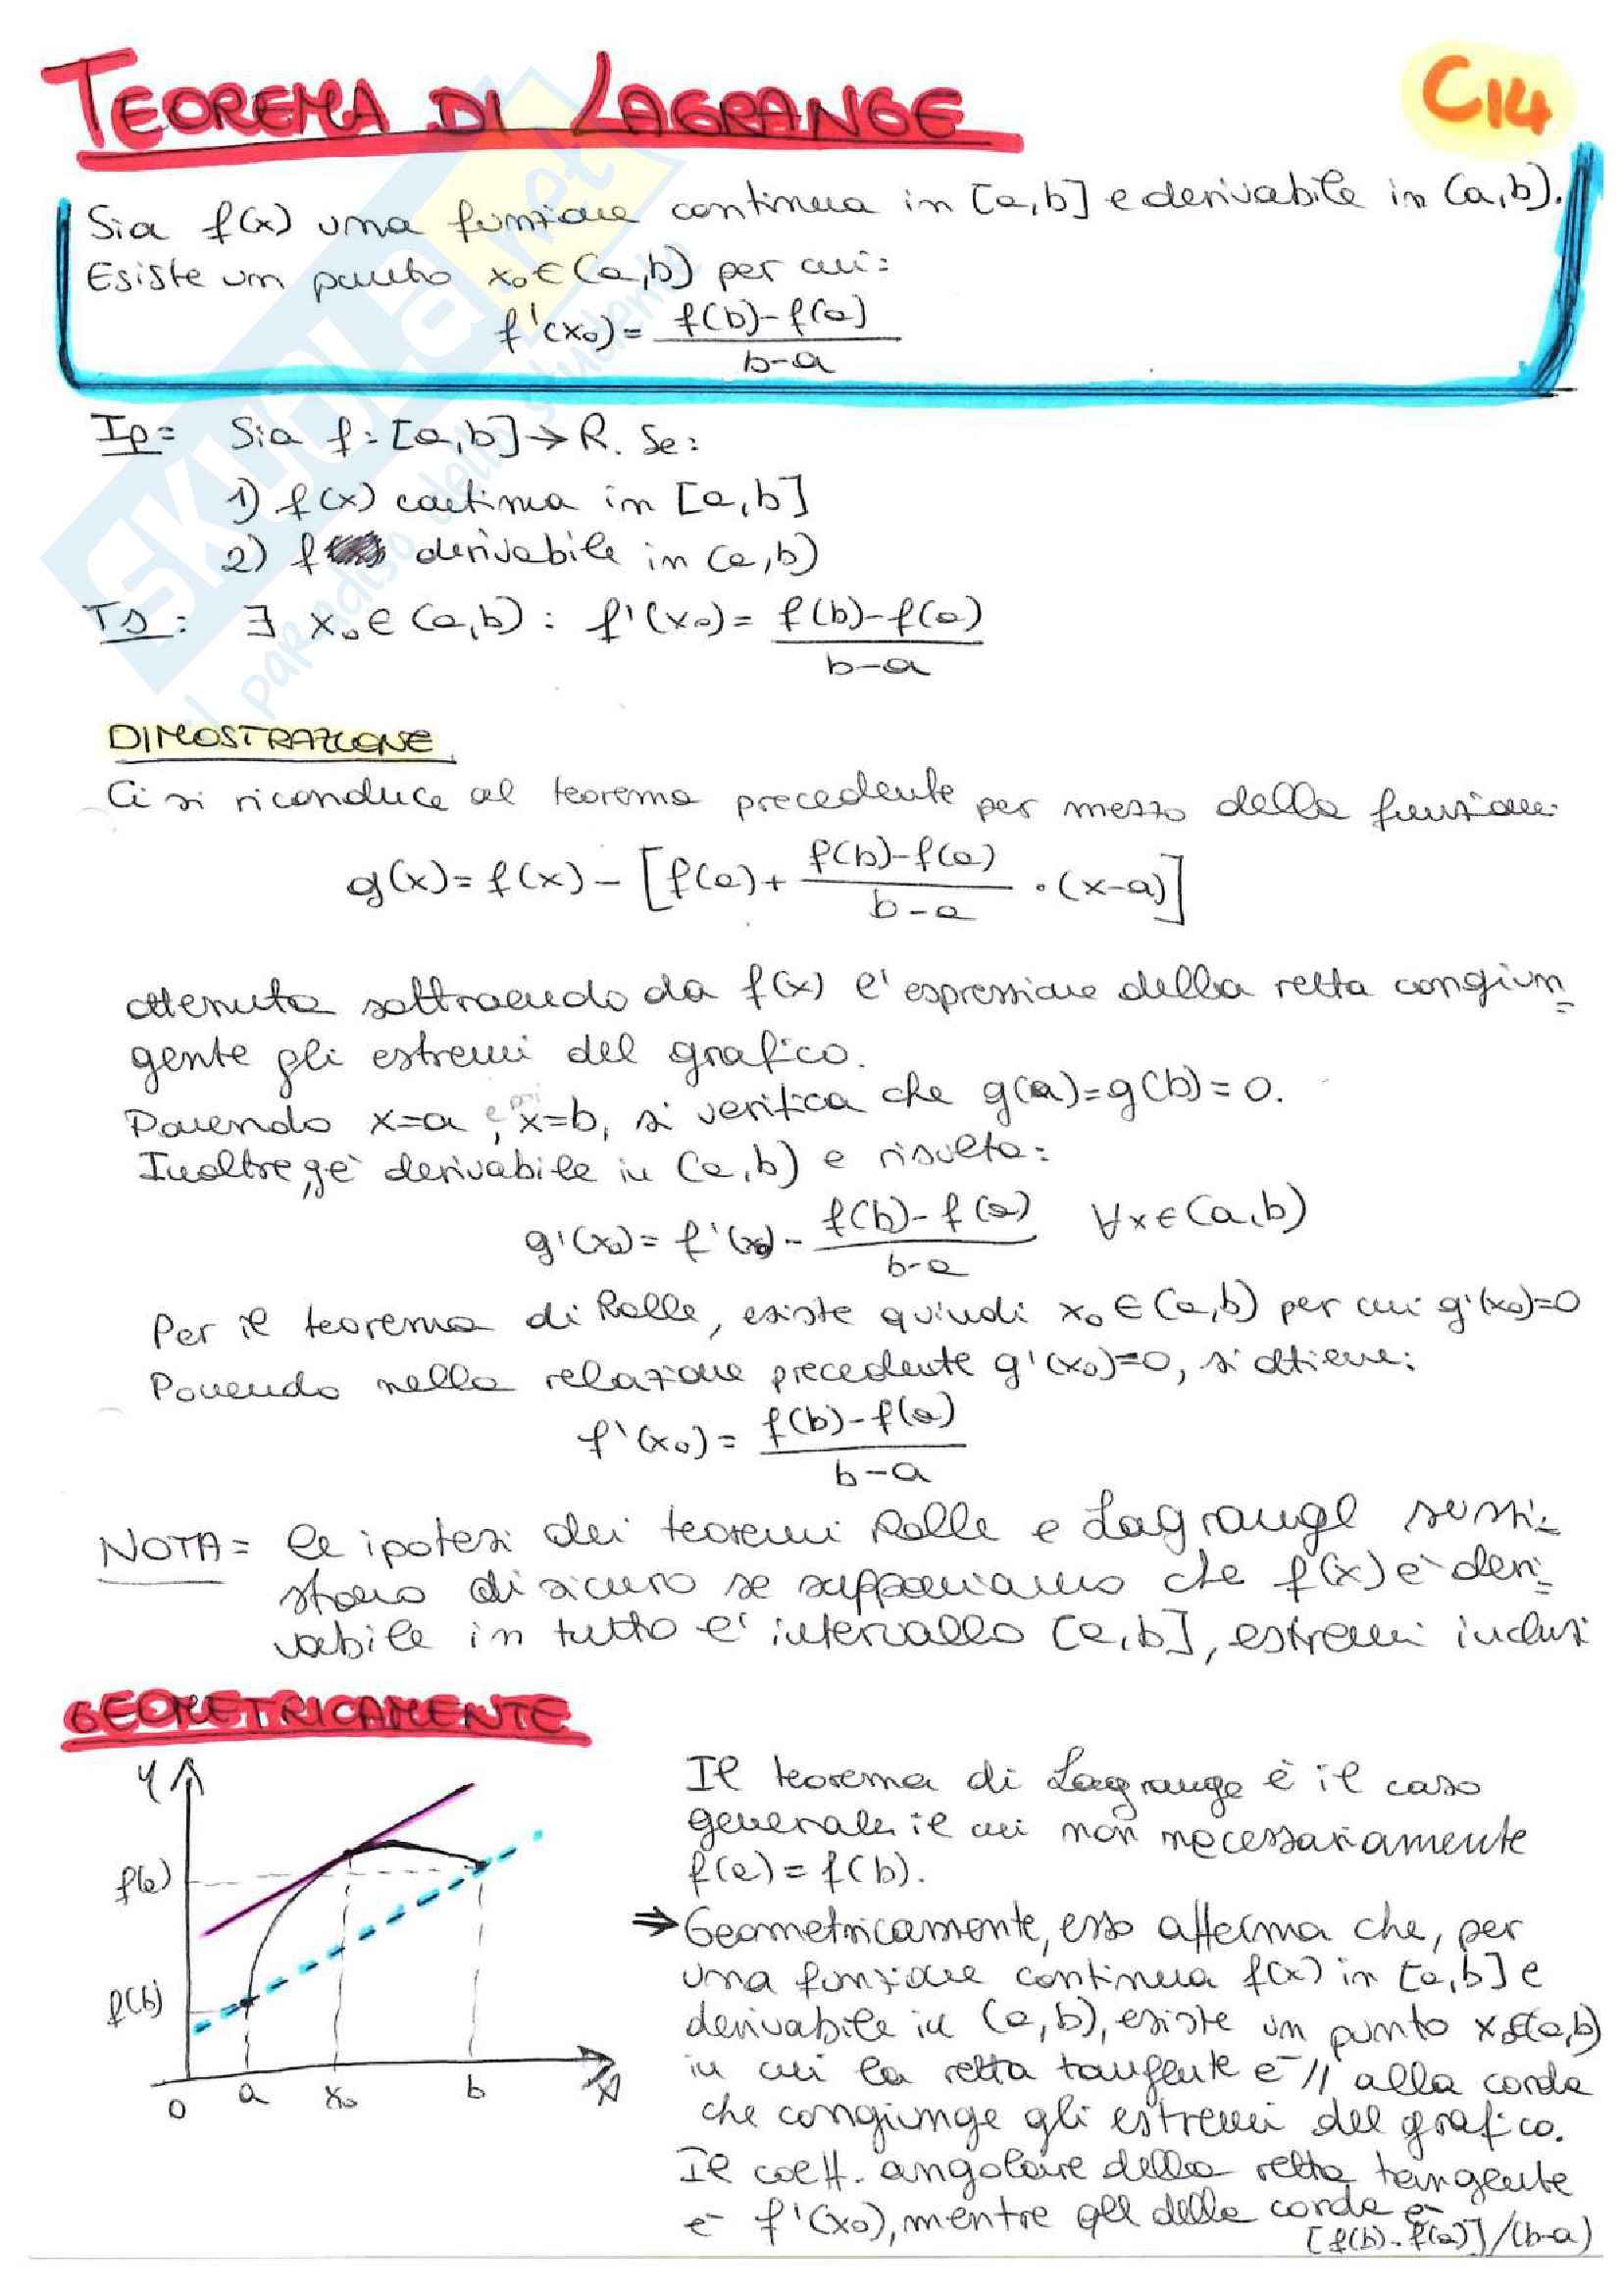 TEOREMA DI LAGRANGE
C14
Sia f(x) una funzione continua in [a,b] e derivabile in (a,b).
Esiste un punto x₀∈(a,b) per cui:
f'(x₀)= f(b)-f(a)
b-a
Ip= Sia f:[a,b]→R. Se:
1) f(x) continua in [a,b]
2) f derivabile in (a,b)
Ts: ∃ x₀∈(a,b): f'(x₀)= f(b)-f(a)
b-a
DIMOSTRAZIONE
Ci si riconduce al teorema precedente per mezzo della funzione:
g(x)=f(x)-[f(a)+ f(b)-f(a) ·(x-a)]
b-a
ottenuta sottraendo da f(x) l'espressione della retta congiun=
gente gli estremi del grafico.
Ponendo x=a, e poi x=b, si verifica che g(a)=g(b)=0.
Inoltre, g è derivabile in (a,b) e risulta:
g'(x₀)= f'(x₀)- f(b)-f(a) ∀x∈(a,b)
b-a
Per il teorema di Rolle, esiste quindi x₀∈(a,b) per cui g'(x₀)=0
Ponendo nella relazione precedente g'(x₀)=0, si ottiene:
f'(x₀)= f(b)-f(a)
b-a
NOTA= le ipotesi dei teoremi Rolle e Lagrange sussi=
stono di sicuro se supponiamo che f(x) è deri=
vabile in tutto l'intervallo [a,b], estremi inclusi
GEOMETRICAMENTE
y
f(a)
f(b)
0 a x₀ b x
Il teorema di Lagrange è il caso
generale il cui non necessariamente
f(a)=f(b).
⇒ Geometricamente, esso afferma che, per
una funzione continua f(x) in [a,b] e
derivabile in (a,b), esiste un punto x₀∈(a,b)
in cui la retta tangente è // alla corda
che congiunge gli estremi del grafico.
Il coeff. angolare della retta tangente
è f'(x₀), mentre qll della corda è
[f(b)-f(a)]/(b-a)
SKUOLA.net
il paradiso dello studente